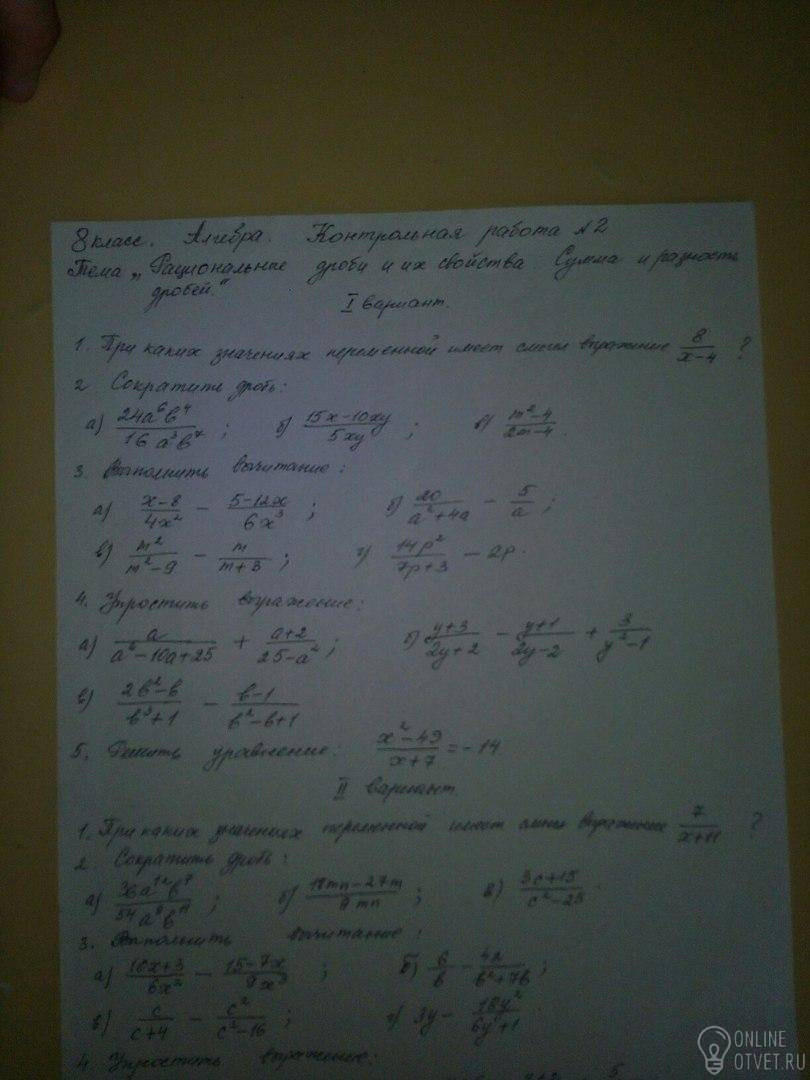 8 класс. Алгебра. Контрольная работа №2
Тема „Рациональные дроби и их свойства. Сумма и разность
дробей."
I вариант.
1. При каких значениях переменной имеет смысл выражение 8/(x-4) ?
2. Сократить дробь:
а) 24a⁶b⁴/16a³b⁷ ; б) (15x-10xy)/5xy ; в) (m²-4)/(2m-4).
3. Выполнить вычитание:
а) (x-8)/4x² - (5-12x)/6x³ ; б) 20/(a²+4a) - 5/a ;
в) m²/(m²-9) - m/(m+3) ; г) 14p²/(7p+3) - 2p.
4. Упростить выражение:
а) a/(a²-10a+25) + (a+2)/(25-a²) ; б) (y+3)/(2y+2) - (y+1)/(2y-2) + 3/(y²-1)
в) (2b²-b)/(b³+1) - (b-1)/(b²-b+1)
5. Решить уравнение: (x²-49)/(x+7) = -14.
II вариант.
1. При каких значениях переменной имеет смысл выражение 7/(x+11) ?
2. Сократить дробь:
а) 36a¹²b⁷/54a⁸b¹¹ ; б) (18mn-27m)/9mn ; в) (3c+15)/(c²-25).
3. Выполнить вычитание:
а) (10x+3)/6x² - (15-7x)/9x³ ; б) 6/b - 42/(b²+7b) ;
в) c/(c+4) - c²/(c²-16) ; г) 3y - 18y²/(6y+1).
4. Упростить выражение:
ONLINE
OTVET.RU